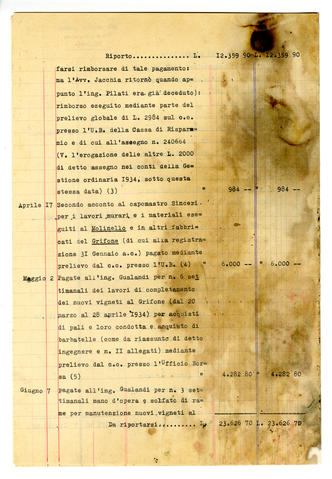 Riporto............... L. 12.359 90 L. 12.359 90
farsi rimborsare di tale pagamento:
ma l'Avv. Jacchia ritornò quando ap-
punto l'ing. Pilati era già deceduto):
rimborso eseguito mediante parte del
prelievo globale di L. 2984 sul c.c.
presso l'U.B. della Cassa di Risparm-
mio e di cui all'assegno n. 240664
(V. l'erogazione delle altre L. 2000
di detto assegno nei conti della Ge-
stione ordinaria 1934, sotto questa
stessa data) (3) " 984 -- " 984 --
Aprile 17 Secondo acconto al capomastro Sincezi-
per i lavori murari e i materiali ese-
guiti al Molinello e in altri fabbri-
cati del Grifone (di cui alla registra-
zione 31 Gennaio a.c.) pagato mediante
prelievo dal c.c. presso l'U.B. (4) " 6.000 -- " 6.000 --
Maggio 2 Pagate all'ing. Gualandi per n. 6 set
timanali dei lavori di completamento
dei nuovi vigneti al Grifone (dal 20
marzo al 28 aprile 1934) per acquisti
di pali e loro condotta e acquisto di
barbatelle (come da riassunto di detto
ingegnere e n. II allegati) mediante
prelievo dal c.c. presso l'Ufficio Bor-
sa (5) " 4.282 80 " 4.282 80
Giugno 7 pagate all'ing. Gualandi per n. 3 set-
timanali mano d'opera e solfato di ra-
me per manutenzione nuovi vigneti al
Da riportarsi..... L. 23.626 70 L. 23.626 70